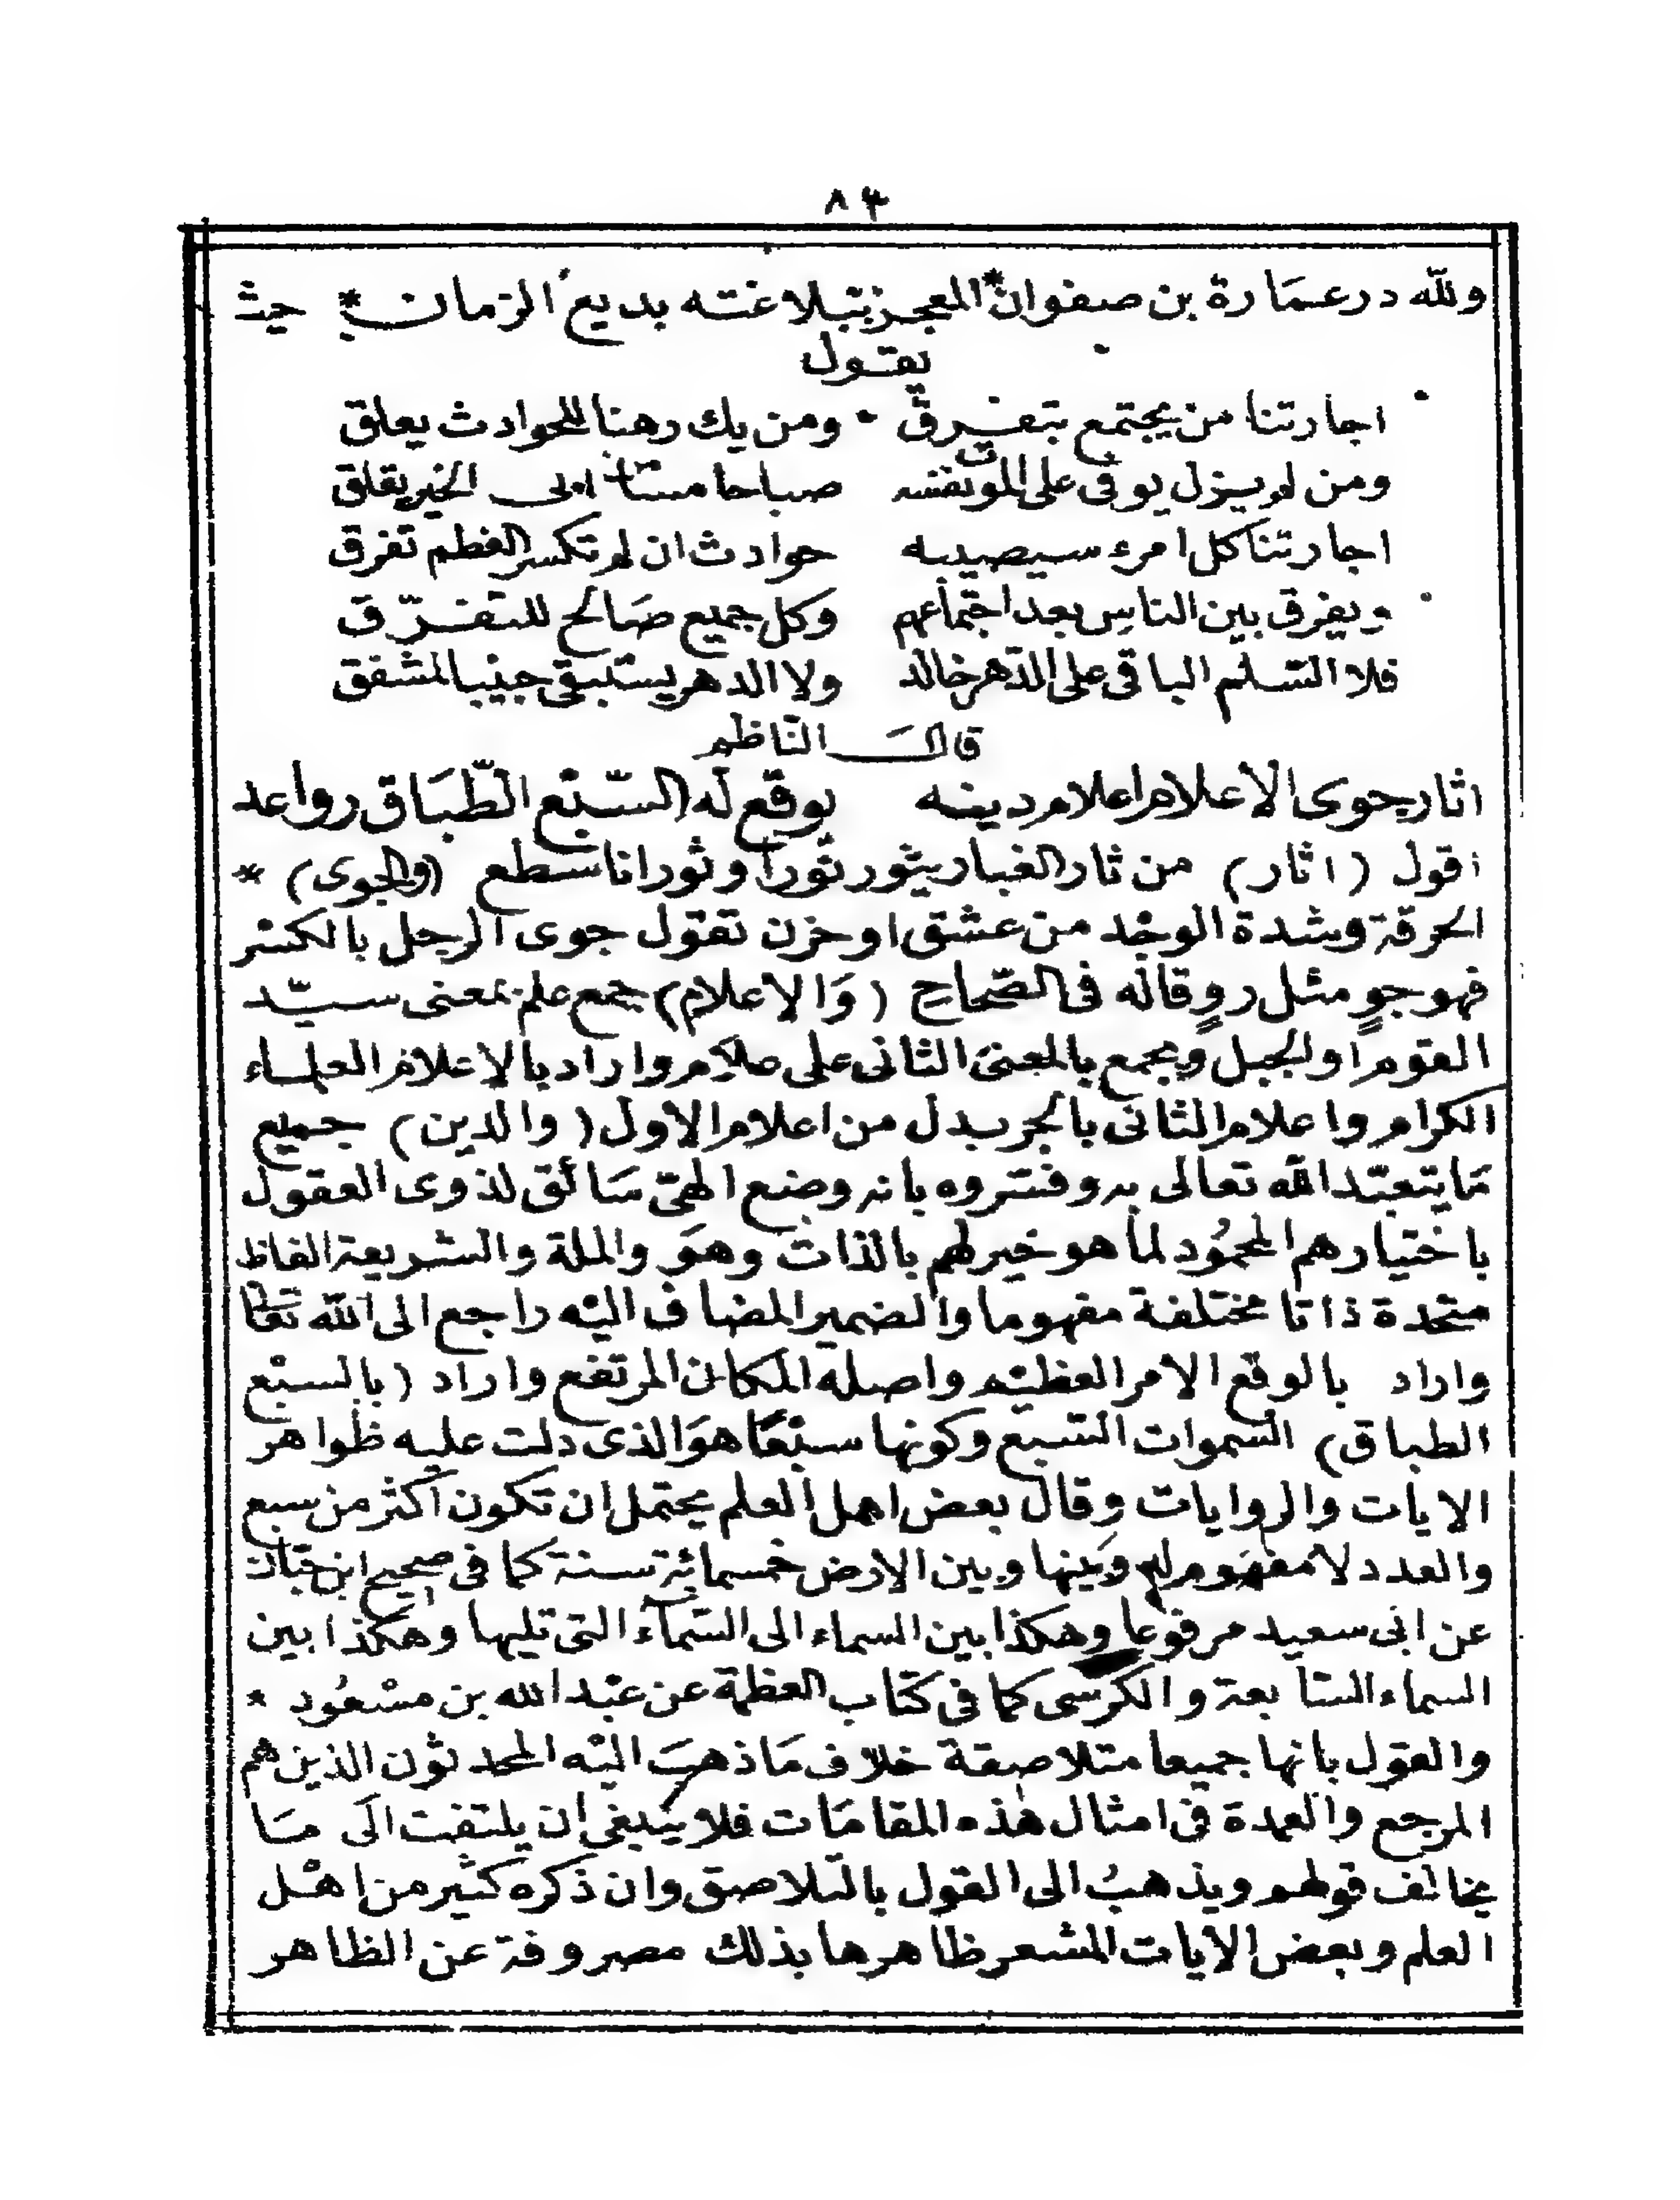 ٨٣
ولله در عمارة بن صفوان * المعجز ببلاغته بديع الزمان * حيث
يقول
اجارتنا من يجتمع يتفرق ومن يك رهنا للحوادث يعلق
ومن لم يزل يوفى على الموت نفسه صباحا مساء الخير يقلق
اجارتنا كل امرء سيصيبه حوادث ان لم تكسر العظم تفرق
ويفرق بين الناس بعد اجتماعهم وكل جميع صالح للتفرّق
فلا السّالم الباقى على الدّهر خالد ولا الدهر يستبقى جنيبا لمشفق
قال النّاظم
اثار جوى الاعلام اعلام دينه بوقع له السّبْع الطّبَاق رواعد
اقول (اثار) من ثار الغبار يثور ثورا وثورانا سطع (والجوى) *
الحرقة وشدة الوجْد من عشق او حزن تقول جوى الرجل بالكسر
فهو جوٍ مثل روٍ قاله فى الصّحاح (وَالاعلام) جمع علم بمعنى سيّد
القوم او الجبل ويجمع بالمعنى الثانى على علام واراد بالاعلام العلماء
الكرام واعلام الثانى بالجر بدل من اعلام الاول (والدين) جميع
مَا يتعبّد الله تعالى به وفسروه بانه وضع الهىّ سَائق لذوى العقول
باختيارهم المحمُود لما هو خير لهم بالذات وهوَ والملة والشريعة الفاظ
متحدة ذاتا مختلفة مفهوما والضمير المضاف اليْه راجع الى الله تعالى
واراد بالوقع الامر العظيْم واصله المكان المرتفع واراد (بالسبْع
الطباق) السموات السّبع وكونها سبْعًا هوَ الذى دلت عليه ظواهر
الايات والروايات وقال بعض اهل العلم يحتمل ان تكون اكثر من سبع
والعدد لا مفهَوم له وَبينها وبين الارض خمسمائة سنة كما فى صحيح ابن حبّان
عن ابى سعيد مرفوعا وهكذا بين السماء الى السّماء التى تليها وهكذا بين
السماء السّابعة والكرسى كما فى كتاب العظمة عن عبْد الله بن مسْعُود *
والقول بانها جميعا متلاصقة خلاف مَا ذهبَ اليْه المحدثون الذين هم
المرجع والعمدة فى امثال هٰذه المقامَات فلا ينبغى ان يلتفت الَى مَا
يخالف قولهم ويذهبُ الى القول بالتلاصق وان ذكره كثير من اهْل
العلم وبعض الايات المشعر ظاهرها بذلك مصروفة عن الظاهر